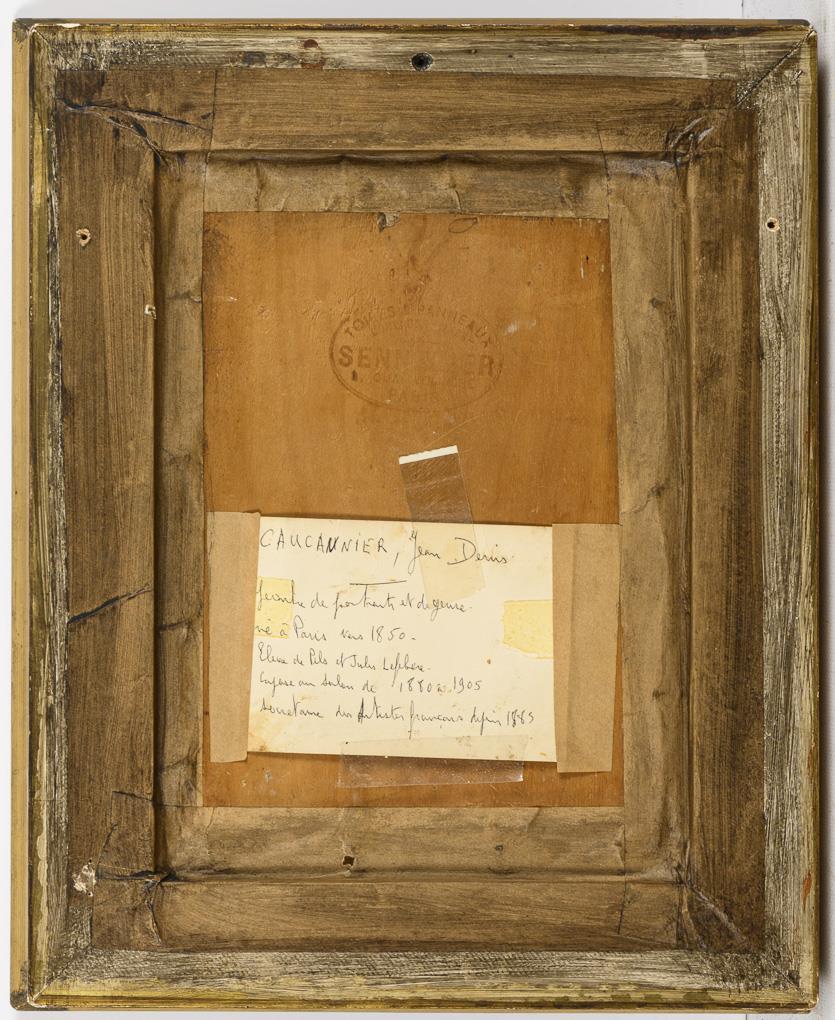 TOILES & PANNEAUX
SENNELIER
PARIS
CAUCANNIER, Jean Denis
peintre de portraits et de genre.
né à Paris vers 1850.
Eleve de Pils et Jules Lefebvre.
Expose au Salon de 1880 à 1905
societaire des Artistes français depuis 1885